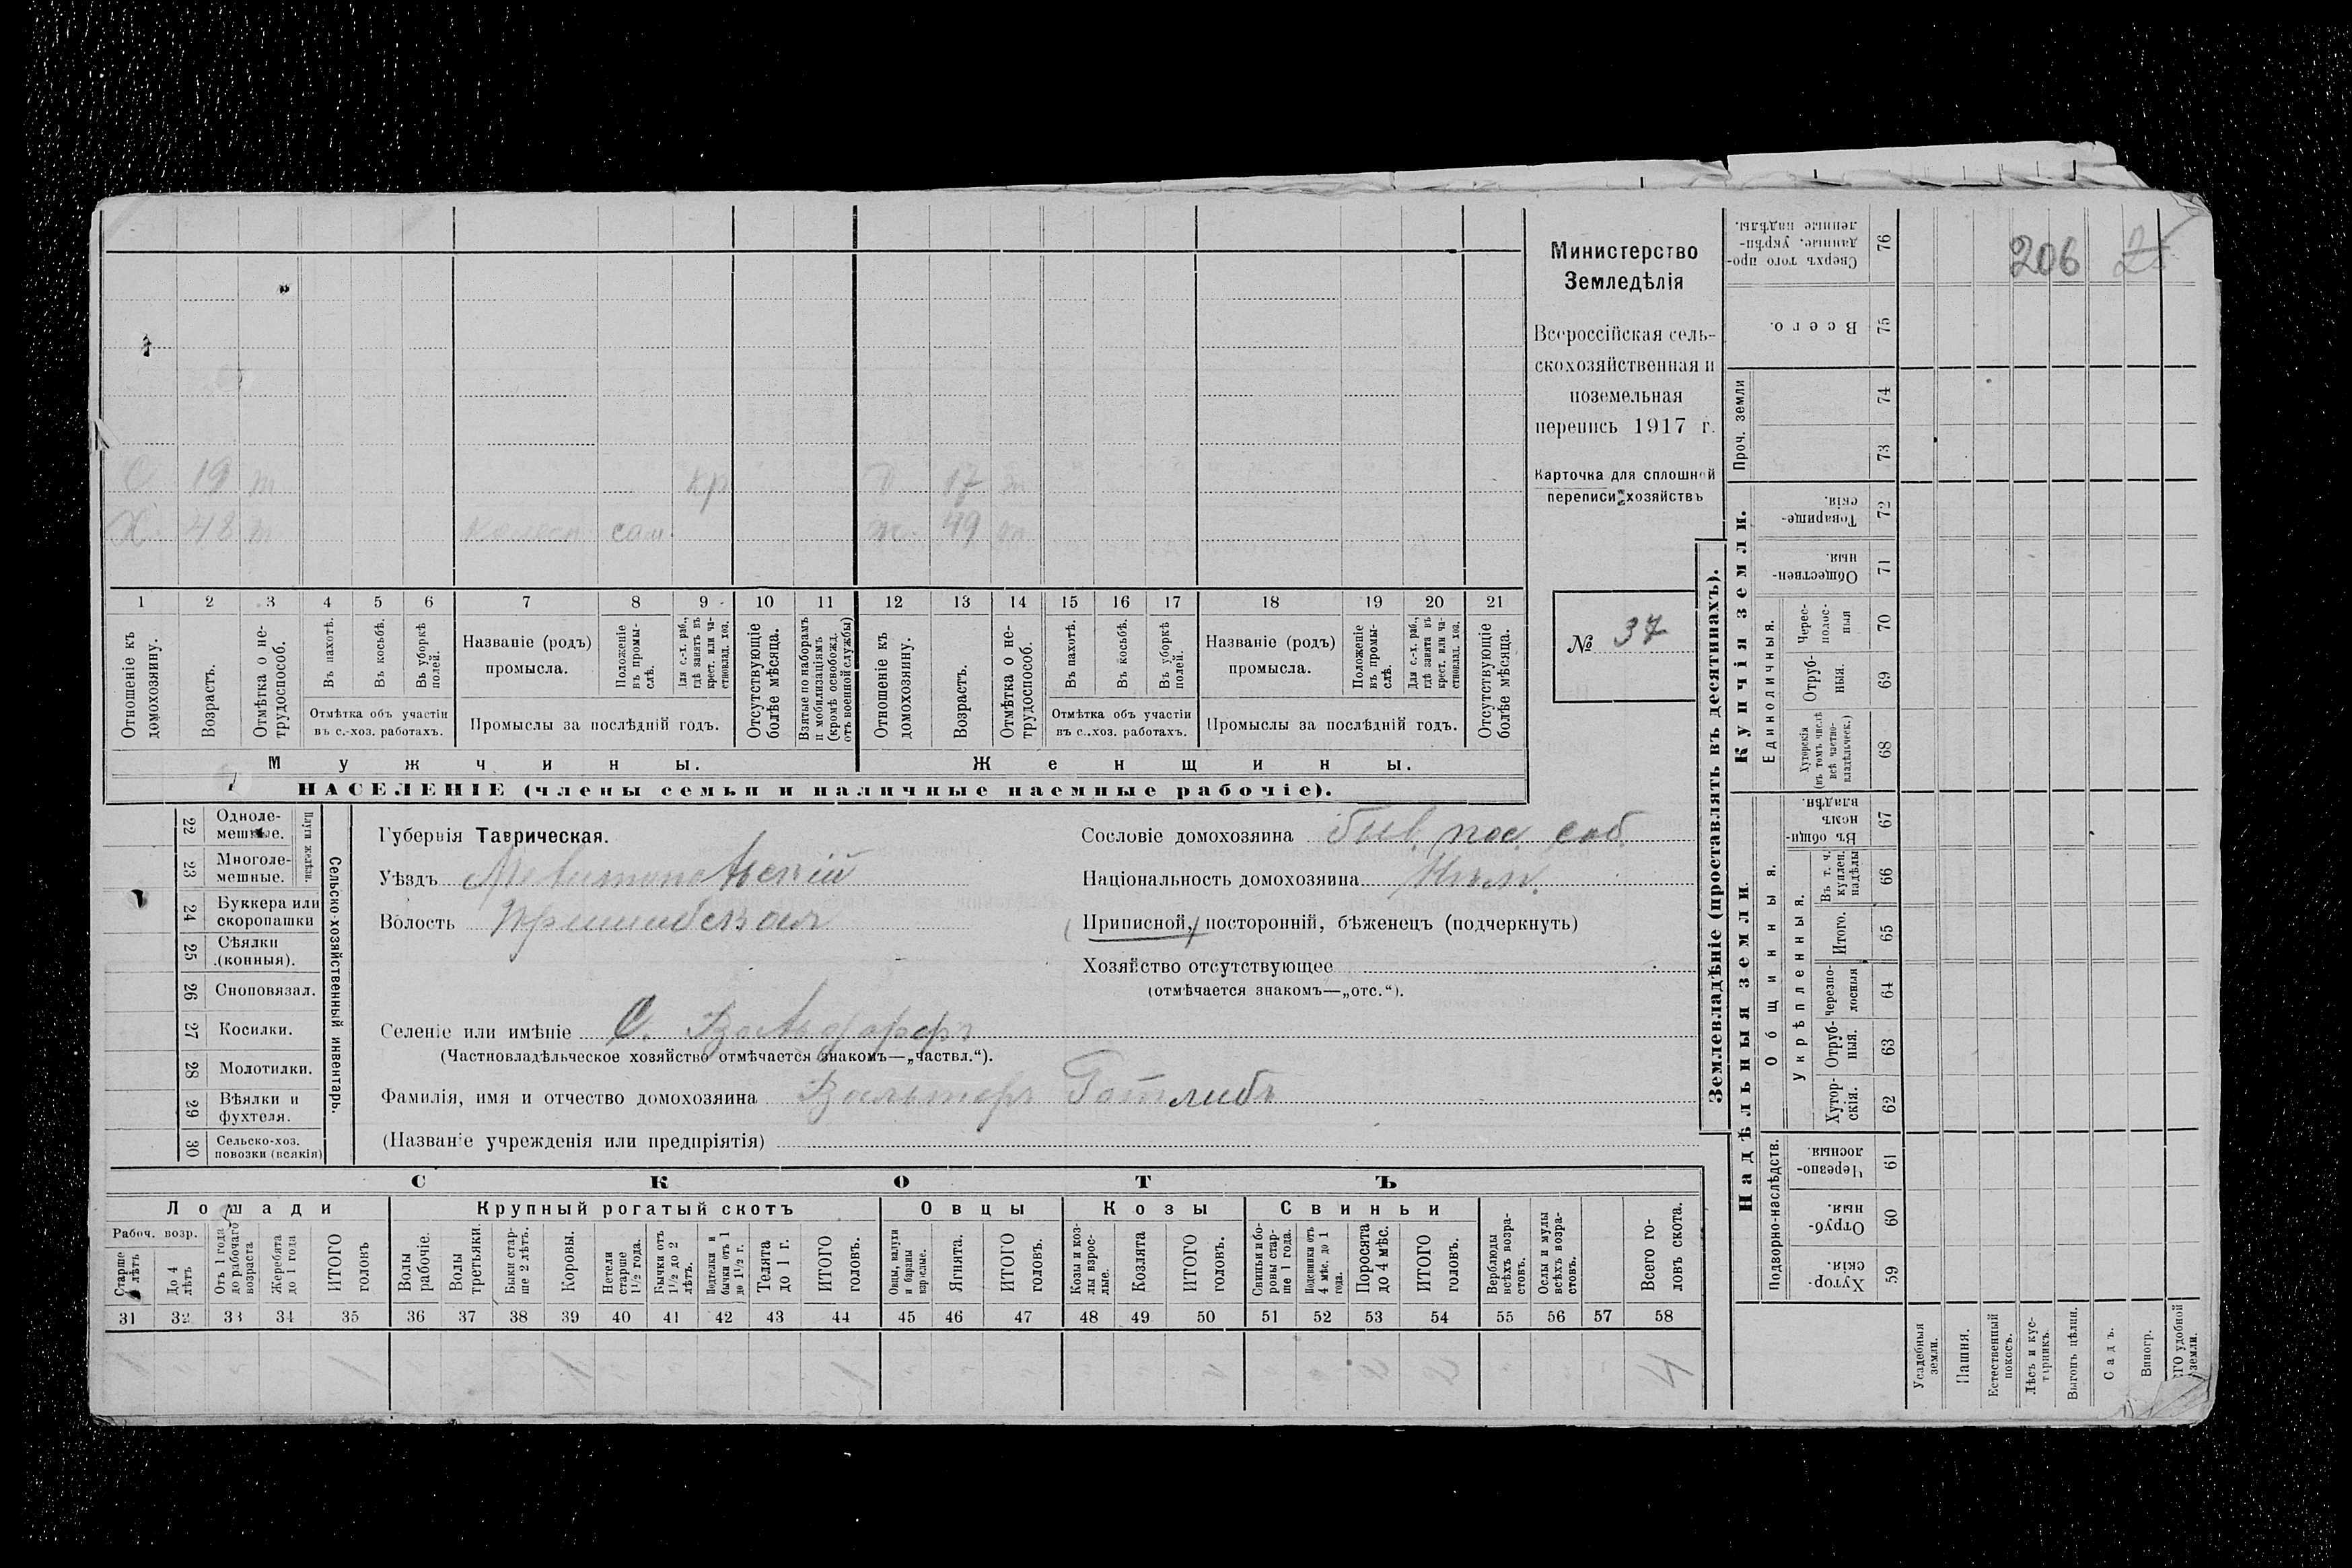 206
Министерство
Земледѣлія
Всероссійская сель-
скохозяйственная и
поземельная
перепись 1917 г.
Карточка для сплошной
переписи хозяйствъ
№ 37
С 19 т кр 17
Х 48 т сам. ж. 49
1 2 3 4 5 6 7 8 9 10 11 12 13 14 15 16 17 18 19 20 21
Отношеніе къ домохозяину.
Возрастъ.
Отмѣтка о не-трудоспособ.
Въ пахотѣ.
Въ косьбѣ.
Въ уборкѣ полей.
Отмѣтка объ участіи
въ с.-хоз. работахъ.
Названіе (родъ)
промысла.
Положеніе въ промы-слѣ.
Для с.-х. раб., гдѣ занятъ въ крест. или ча-стновлад. хоз.
Промыслы за послѣдній годъ.
Отсутствующіе болѣе мѣсяца.
Взятые по наборамъ и мобилизаціямъ (кромѣ освобожд. отъ военной службы)
Отношеніе къ домохозяину.
Возрастъ.
Отмѣтка о не-трудоспособ.
Въ пахотѣ.
Въ косьбѣ.
Въ уборкѣ полей.
Отмѣтка объ участіи
въ с.-хоз. работахъ.
Названіе (родъ)
промысла.
Положеніе въ промы-слѣ.
Для с.-х. раб., гдѣ занята въ крест. или ча-стновлад. хоз.
Промыслы за послѣдній годъ.
Отсутствующіе болѣе мѣсяца.
Мужчины.
Женщины.
НАСЕЛЕНІЕ (члены семьи и наличные наемные рабочіе).
22 Одноле-мешные.
23 Многоле-мешные.
Плуги желѣзн.
24 Буккера или скоропашки
25 Сѣялки (конныя).
26 Сноповязал.
27 Косилки.
28 Молотилки.
29 Вѣялки и фухтеля.
30 Сельско-хоз. повозки (всякія)
Сельско-хозяйственный инвентарь.
Губернія Таврическая.
Уѣздъ Мелитопольскій
Волость Пришибская
Сословіе домохозяина быв. пос. соб.
Національность домохозяина Нѣм.
Приписной, посторонній, бѣженецъ (подчеркнуть)
Хозяйство отсутствующее
(отмѣчается знакомъ—„отс.“).
Селеніе или имѣніе С. Вальдорфъ
(Частновладѣльческое хозяйство отмѣчается знакомъ—„частвл.“).
Фамилія, имя и отчество домохозяина Вальтеръ Готлибъ
(Названіе учрежденія или предпріятія)
СКОТЪ
Лошади
Крупный рогатый скотъ
Овцы
Козы
Свиньи
Рабоч. возр.
Старше 4 лѣтъ
До 4 лѣтъ
Отъ 1 года до рабочаго возраста
Жеребята до 1 года
ИТОГО головъ
Волы рабочіе.
Волы третьяки.
Быки стар-ше 2 лѣтъ.
Коровы.
Нетели старше 1 1/2 года.
Бычки отъ 1 1/2 до 2 лѣтъ.
Подтелки и бычки отъ 1 до 1 1/2 г.
Телята до 1 г.
ИТОГО головъ.
Овцы, валухи и бараны взрослые.
Ягнята.
ИТОГО головъ.
Козы и коз-лы взрос-лые.
Козлята
ИТОГО головъ.
Свиньи и бо-ровы стар-ше 1 года.
Подсвинки отъ 4 мѣс. до 1 года.
Поросята до 4 мѣс.
ИТОГО головъ.
Верблюды всѣхъ возра-стовъ.
Ослы и мулы всѣхъ возра-стовъ.
Всего го-ловъ скота.
31 32 33 34 35 36 37 38 39 40 41 42 43 44 45 46 47 48 49 50 51 52 53 54 55 56 57 58
Землевладѣніе (проставлять въ десятинахъ).
Надѣльныя земли.
Купчія земли.
Проч. земли
Подворно-наслѣдств.
Общинныя.
Укрѣпленныя.
Единоличныя.
Хутор-скія. 59
Отруб-ныя. 60
Черезпо-лосныя. 61
Хутор-скія. 62
Отруб-ныя. 63
Черезпо-лосныя 64
Итого. 65
Въ т. ч. куплен. надѣлы 66
Въ общин-номъ владѣн. 67
Хуторскія (въ томъ числѣ всѣ частно-владѣльческ.) 68
Отруб-ныя. 69
Черес-полос-ныя 70
Обществен-ныя. 71
Товарище-скія. 72
73
74
Всего. 75
Сверхъ того про-данные, укрѣп-ленные надѣлы. 76
Усадебныя земли.
Пашня.
Естественный покосъ.
Лѣсъ и кус-тарникъ.
Выгонъ цѣлин.
Садъ.
Виногр.